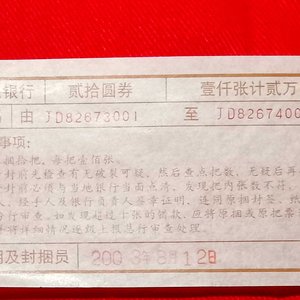 银行 贰拾圆券 壹仟张计贰万
由 JD82673001 至 JD8267400
事项:
捆拾把,每把壹佰张。
封前先检查有无破裂可疑,然后查点把数,无疑后再
封前必须与当地银行当面点清,发现把内张数不符,
人、经手人及银行负责人签章证明、连同原捆封签、张
行审查。如发现超过十张的错款,应将原捆或原把票
将详细情况逐级上报总行审查处理。
期及封捆员 2003年8月12日